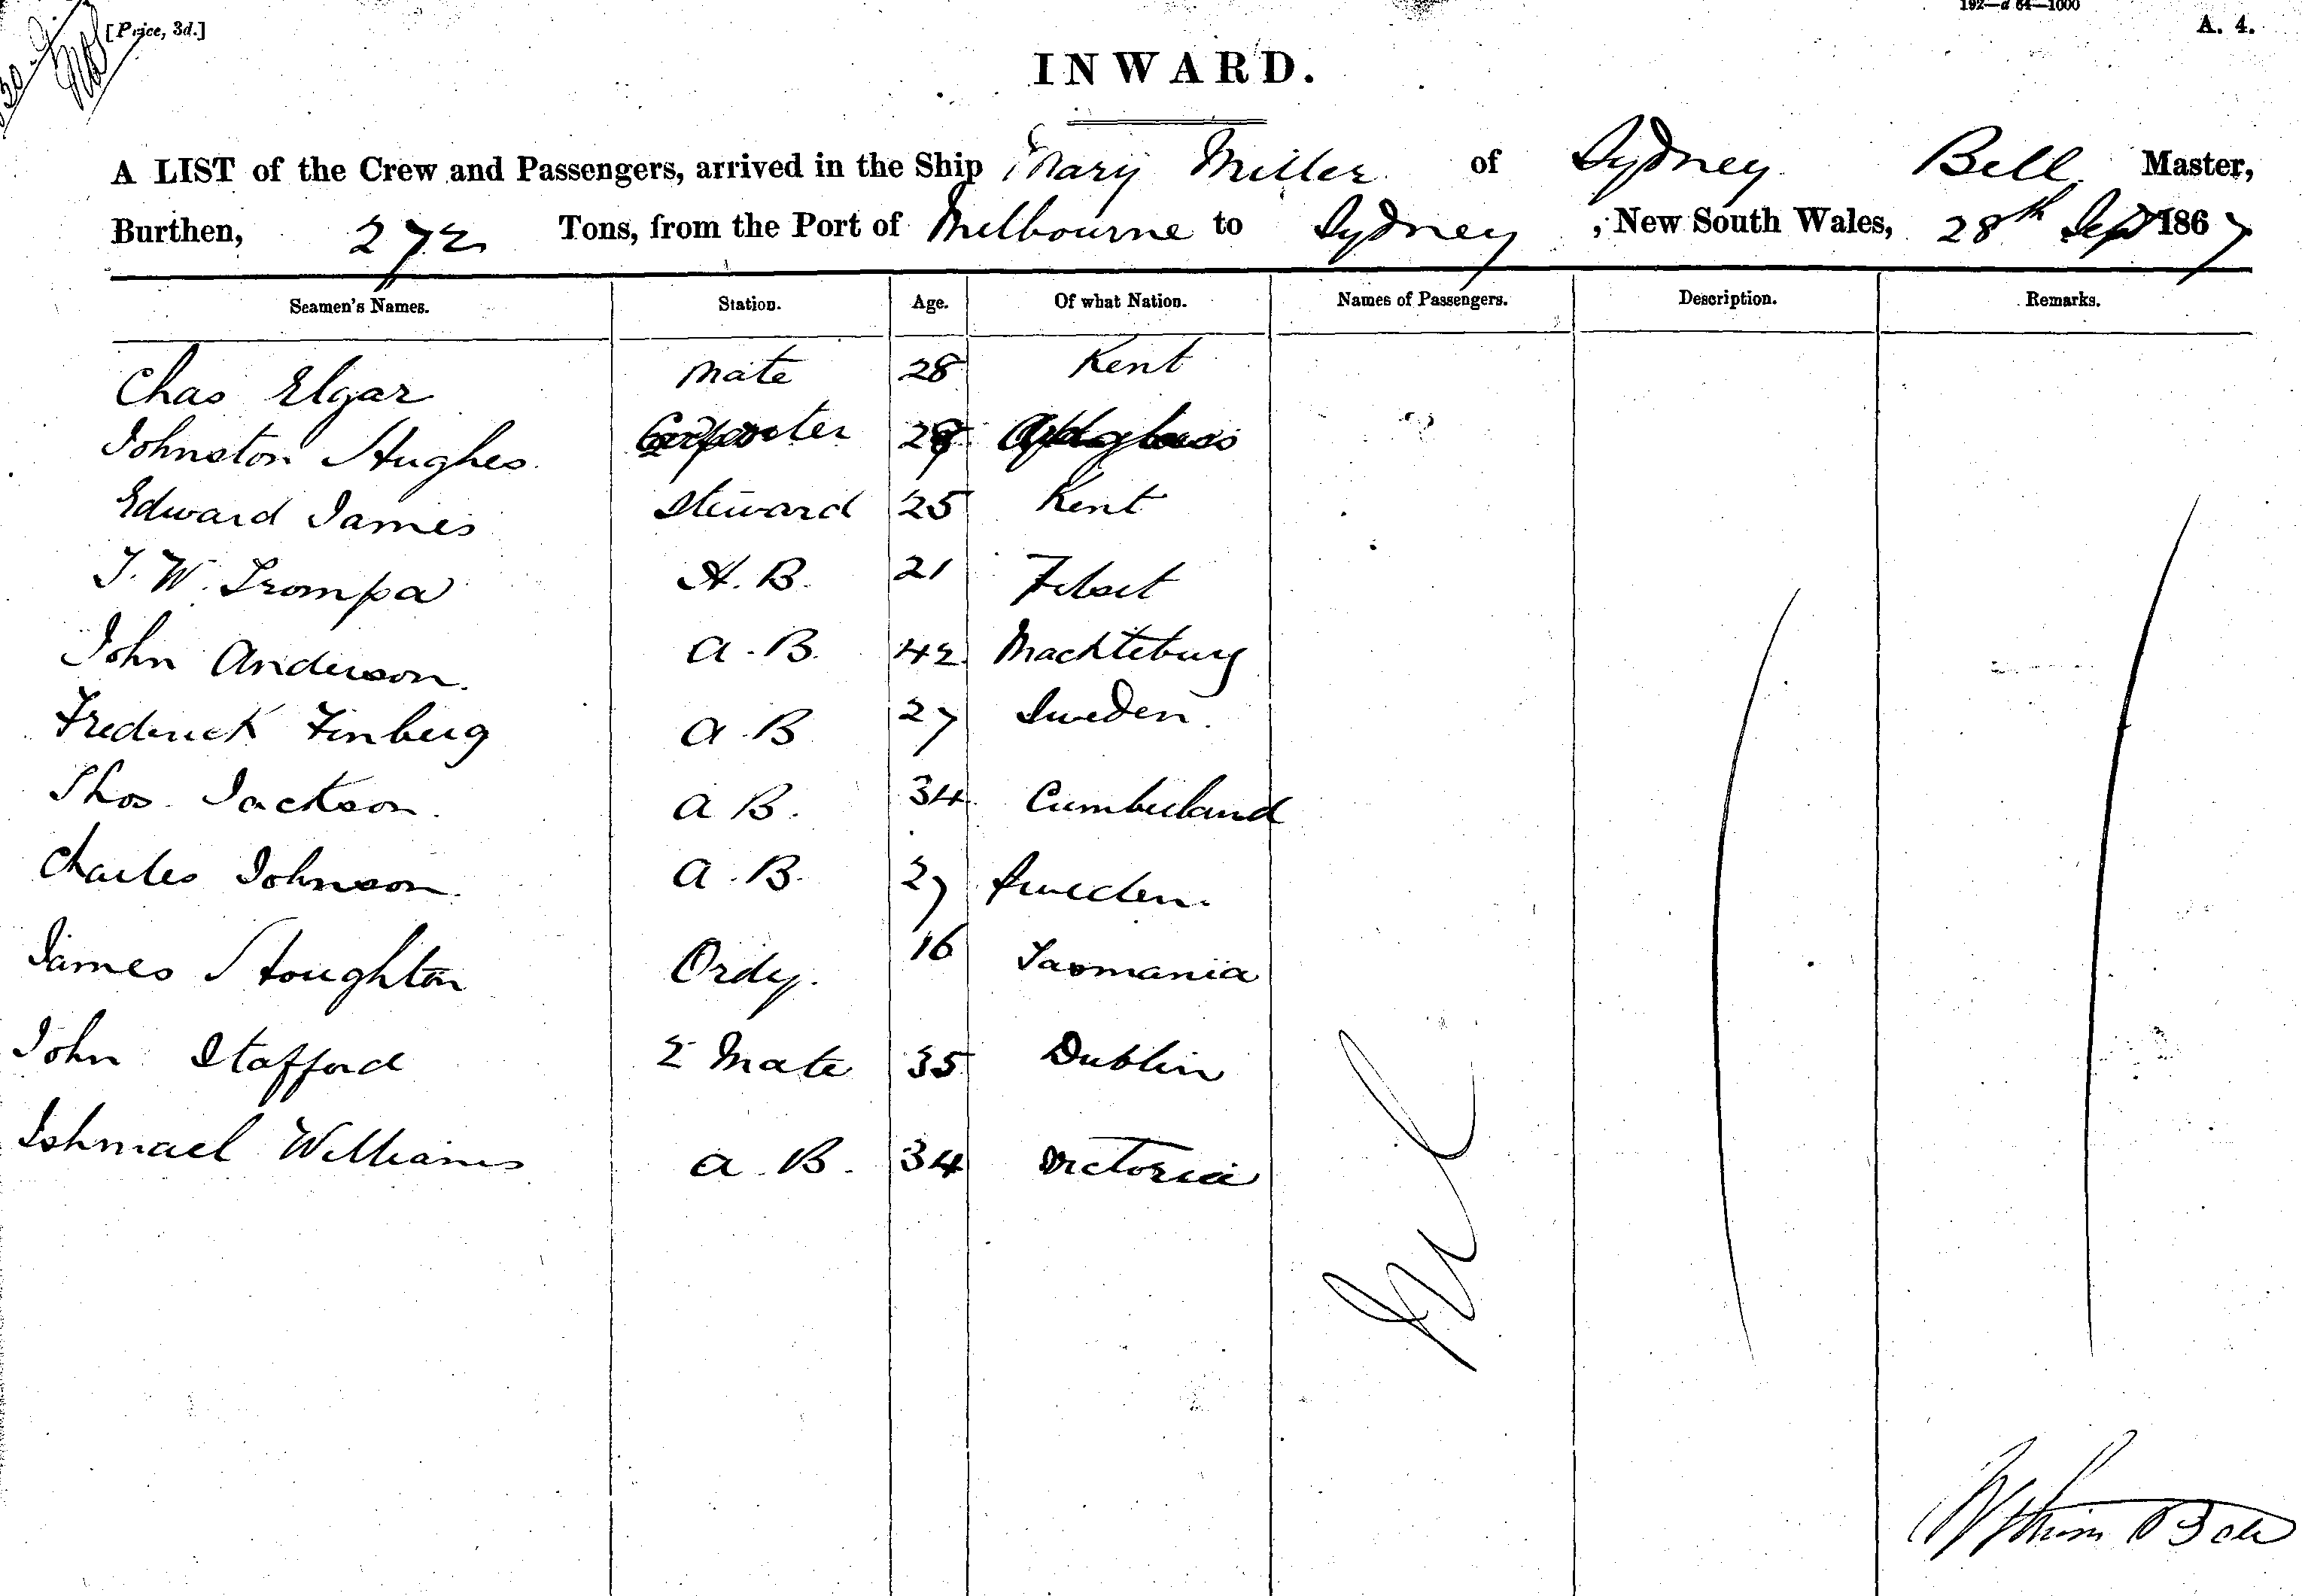 [Price, 3d.]
192—a 64—1000
A. 4.
INWARD.
A LIST of the Crew and Passengers, arrived in the Ship Mary Miller of Sydney Bell Master,
Burthen, 272 Tons, from the Port of Melbourne to Sydney, New South Wales, 28th Sept 1867
Seamen's Names. Station. Age. Of what Nation. Names of Passengers. Description. Remarks.
Chas Elgar Mate 28 Kent
Johnston Hughes Carpenter
Edward James Steward 25 Kent
J. W. Trompa A. B. 21
John Anderson. A. B. 42 Machteburg
Frederick Finberg A. B 27 Sweden.
Thos. Jackson. A B. 34 Cumberland
Charles Johnson. A. B. 27 Sweden.
James Houghton Ordy. 16 Tasmania
John Stafford 2 Mate 35 Dublin
Ishmael Williams A. B. 34 Victoria
Nil
Bell